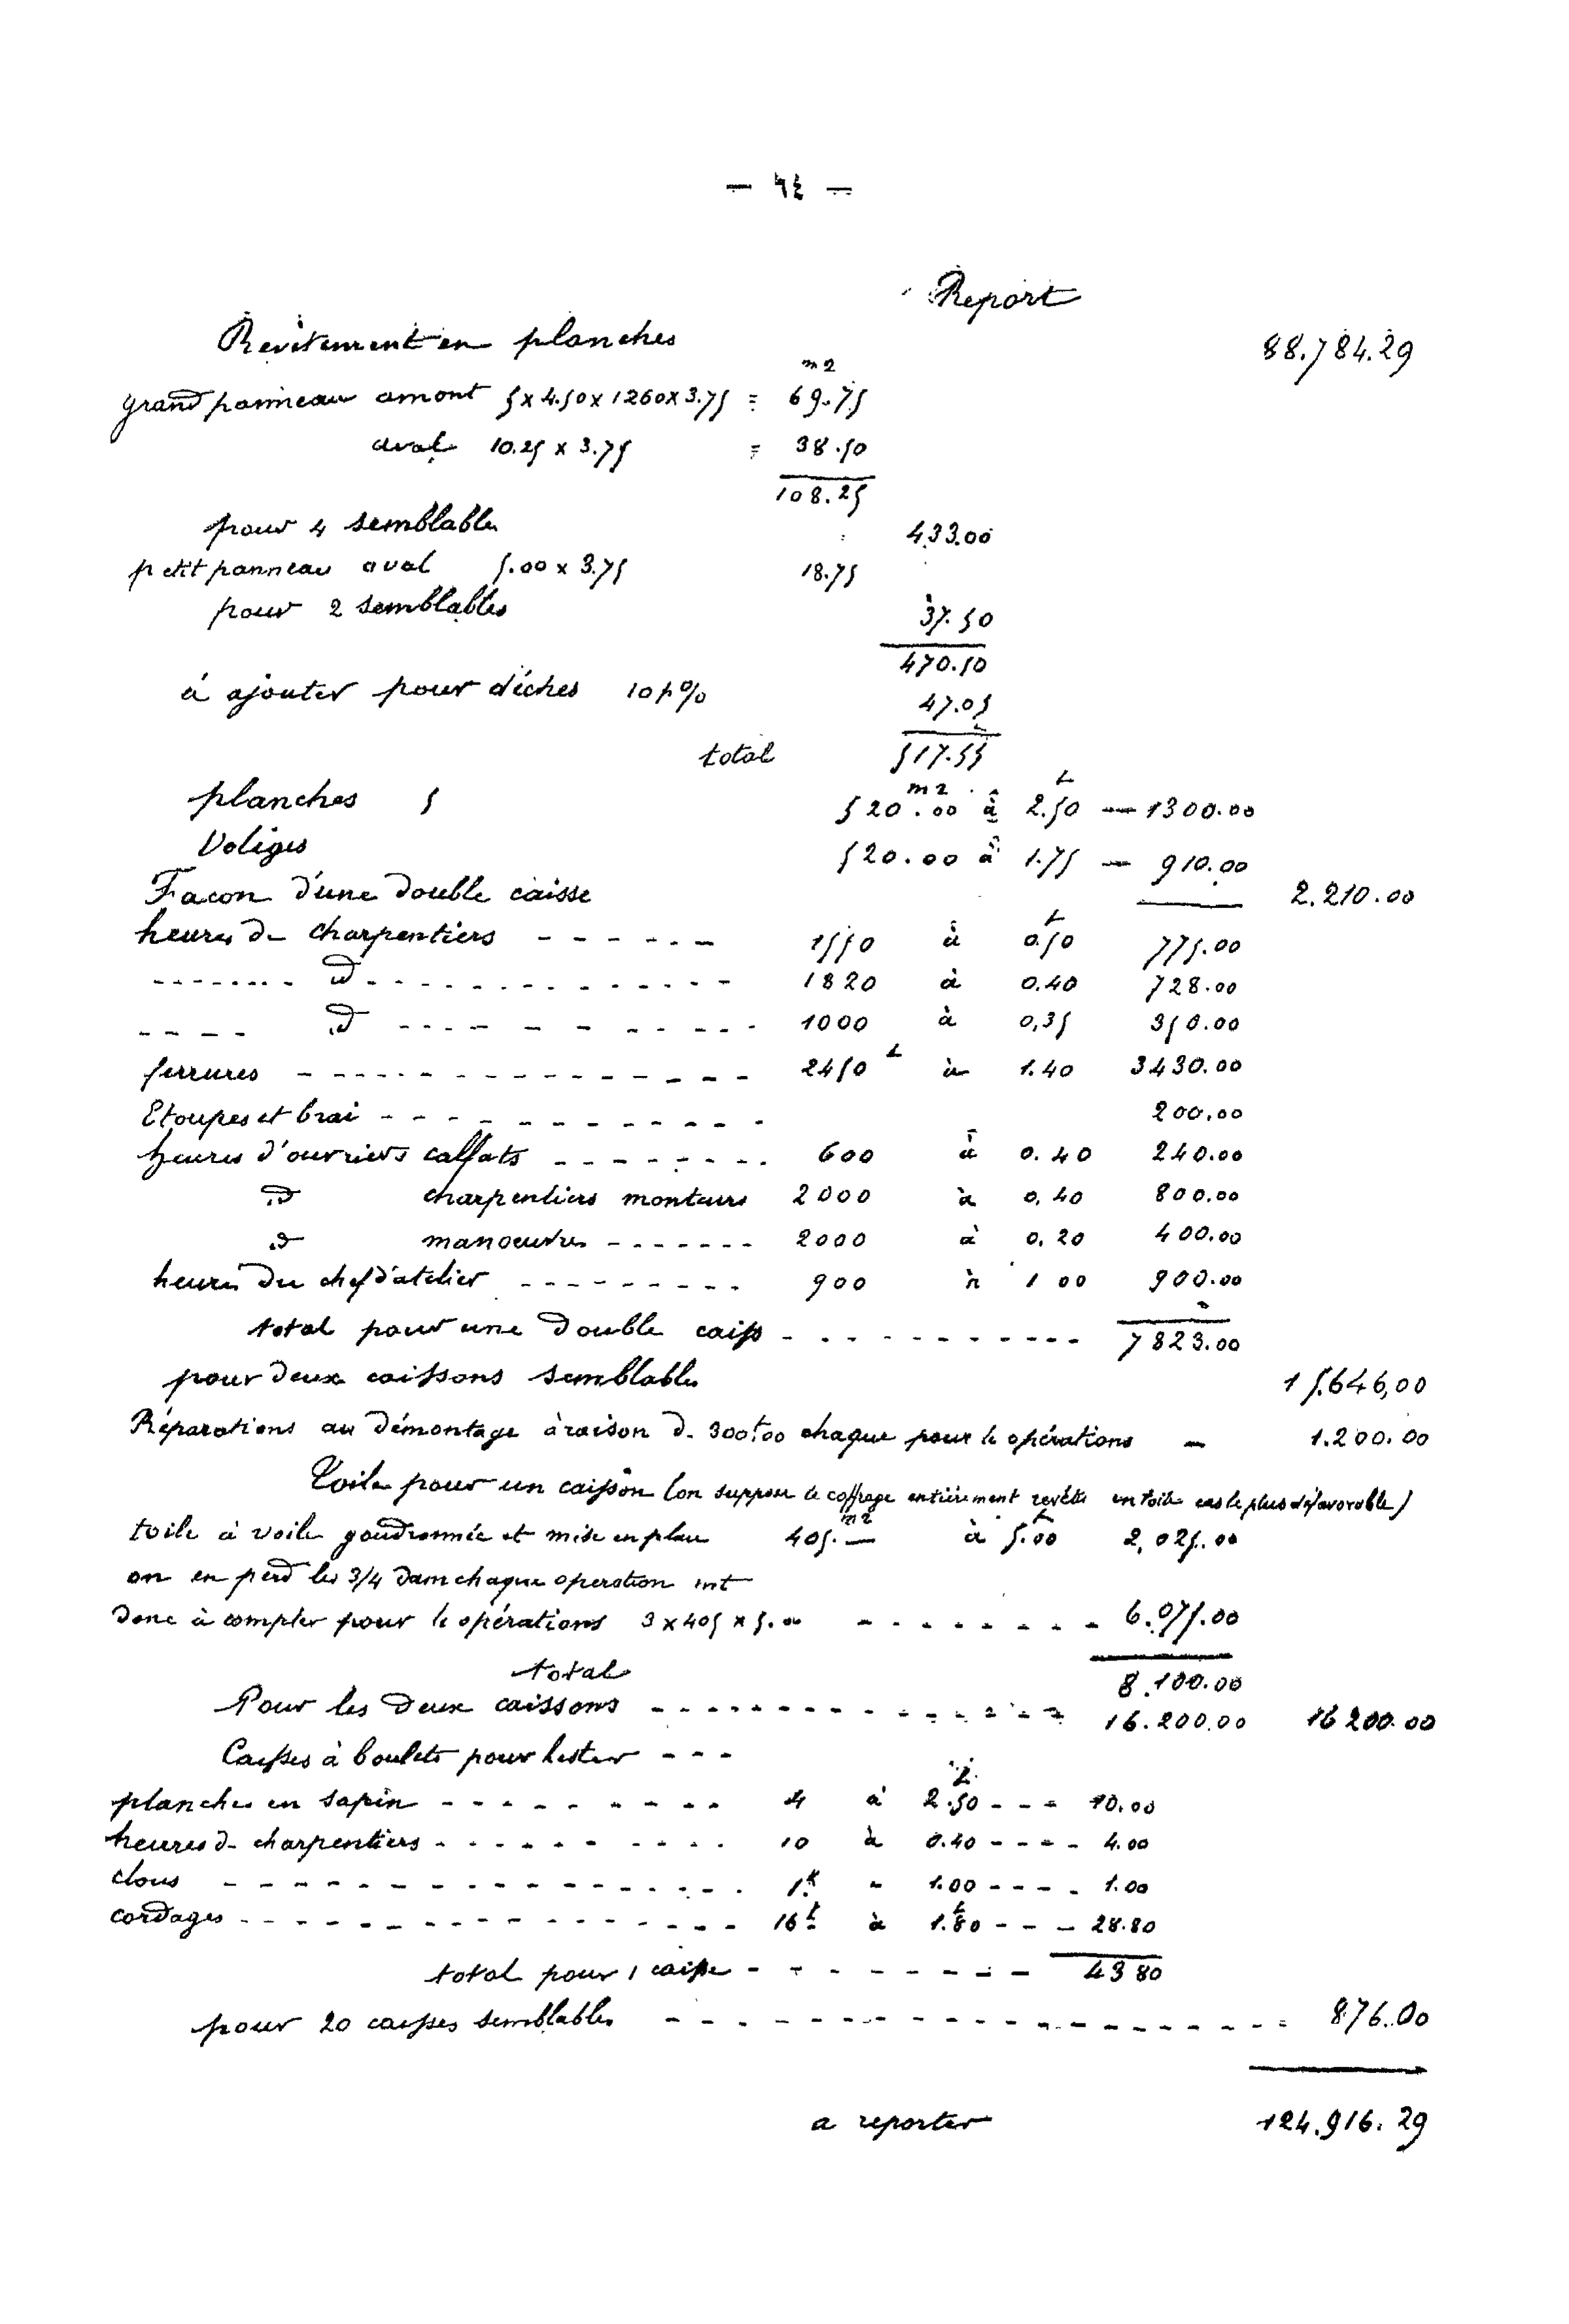 Report
Revêtement en planches 88.784.29
m2
grand panneau amont 5 x 4.50 x 1260 x 3.75 = 69.75
aval 10.25 x 3.75 = 38.50
108.25
pour 4 semblables 433.00
petit panneau aval 5.00 x 3.75 18.75
pour 2 semblables 37.50
470.50
à ajouter pour déches 10 p% 47.05
total 517.55
planches 520.00 m2 à 2.50 — 1300.00
Voliges 520.00 à 1.75 — 910.00
Facon d'une double caisse 2.210.00
heures de charpentiers - - - - - - 1550 à 0.50 775.00
- - - - d° - - - - 1820 à 0.40 728.00
- - - - d° - - - - 1000 à 0,35 350.00
ferrures - - - - 2450 à 1.40 3430.00
Etoupes et brai - - - - 200.00
heures d'ouvriers calfats - - - - 600 à 0.40 240.00
d° charpentiers monteurs 2000 à 0,40 800.00
d° manoeuvres - - - - 2000 à 0.20 400.00
heures du chef d'atelier - - - - 900 à 1 00 900.00
total pour une double caisse - - - - 7823.00
pour deux caissons semblables 15.646,00
Réparations au démontage à raison de 300f00 chaque pour 4 opérations — 1.200.00
Toile pour un caisson (on suppose le coffrage entièrement revêtu en toile cas le plus défavorable)
toile à voile goudronnée et mise en place 405. m2 — à 5.00 2,025.00
on en perd les 3/4 dans chaque operation soit
donc à compter pour 4 opérations 3 x 405 x 5.00 - - - - 6.075.00
total 8.100.00
Pour les deux caissons - - - - 16.200.00 16 200.00
Caisses à boulets pour lester - - -
planches en sapin - - - - 4 à 2.50 - - - 10.00
heures de charpentiers - - - - 10 à 0.40 - - - - 4.00
clous - - - - 1.k " 1.00 - - - - 1.00
cordages - - - - 16k à 1.80 - - - 28.80
total pour 1 caisse - - - - 43 80
pour 20 caisses semblables - - - - 876.00
a reporter 124.916.29